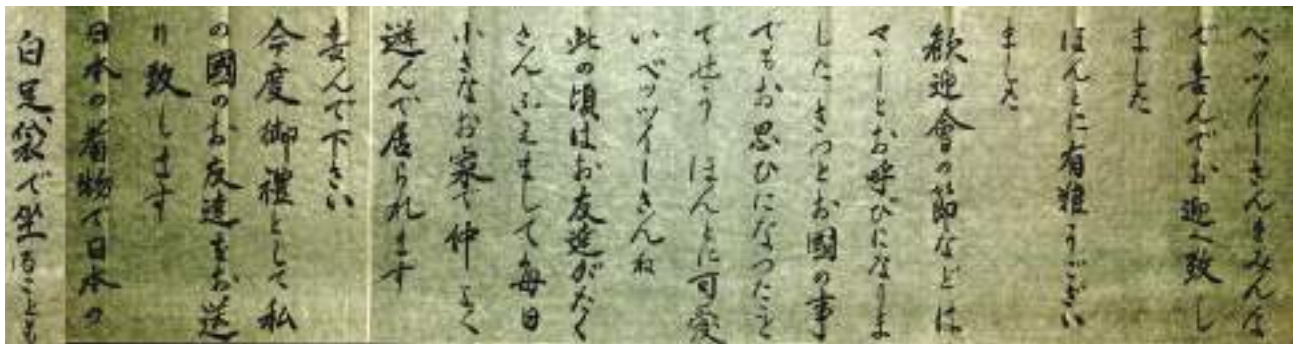 ベッツイーさんをみんな
で喜んでお迎へ致し
ました
ほんとに有難うござい
ました
歓迎會の節などは
マヽーとお呼びになりま
した きつとお國の事
でもお思ひになつたこと
でせう ほんとに可愛
いベッツイーさんね
此の頃はお友達がたく
さんふえまして毎日
小さなお家で仲よく
遊んで居られます
喜んで下さい
今度御禮として私
の國のお友達をお送
り致します
日本の着物で日本の
白足袋で坐ることも